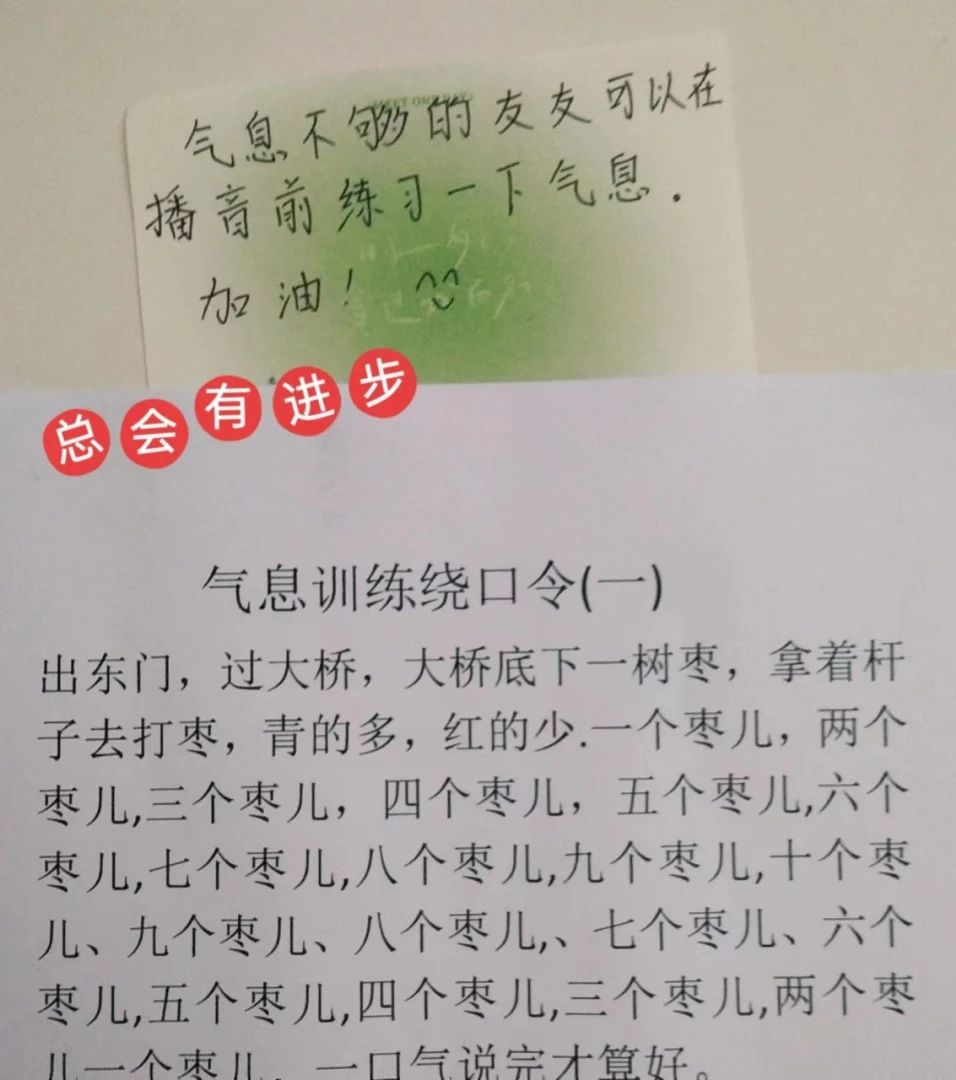 气息不够的友友可以在
播音前练习一下气息.
加油!
总会有进步
气息训练绕口令(一)
出东门，过大桥，大桥底下一树枣，拿着杆
子去打枣，青的多，红的少.一个枣儿，两个
枣儿,三个枣儿，四个枣儿，五个枣儿,六个
枣儿,七个枣儿,八个枣儿,九个枣儿,十个枣
儿、九个枣儿、八个枣儿,、七个枣儿、六个
枣儿,五个枣儿,四个枣儿,三个枣儿,两个枣
儿一个枣儿，一口气说完才算好。